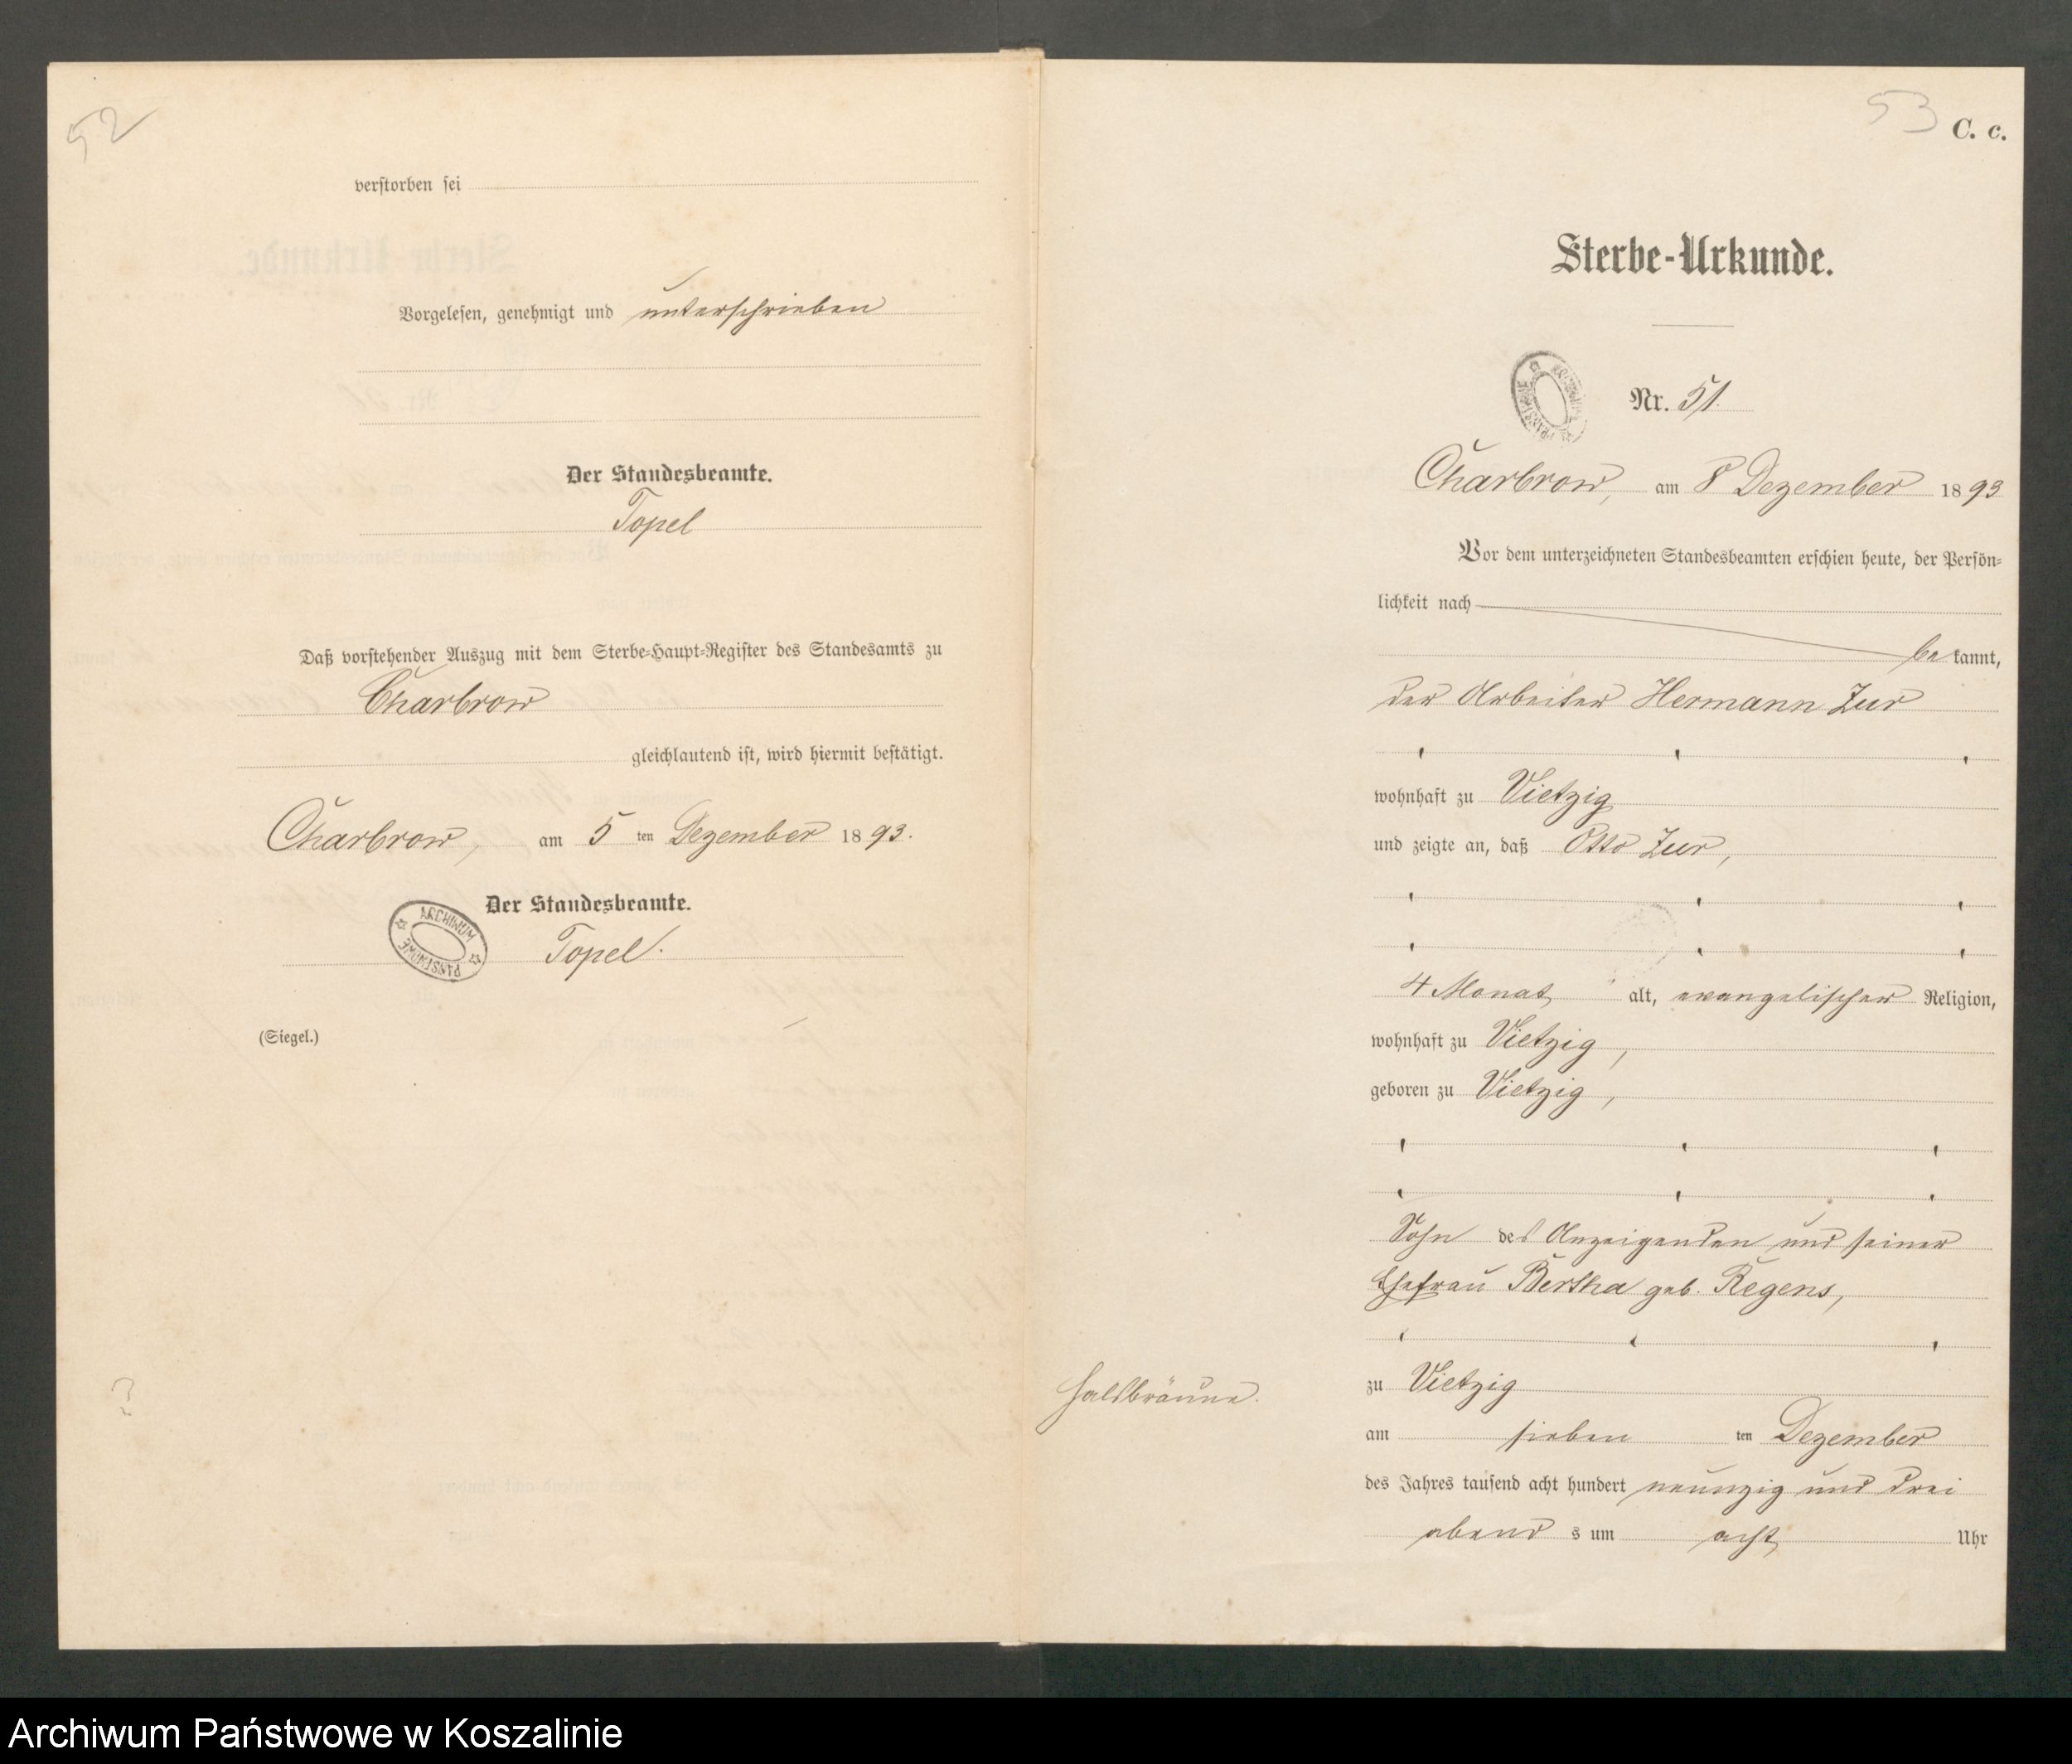 52
verstorben sei
Vorgelesen, genehmigt und unterschrieben
Der Standesbeamte.
Topel
Daß vorstehender Auszug mit dem Sterbe-Haupt-Register des Standesamts zu
Charbrow
gleichlautend ist, wird hiermit bestätigt.
Charbrow, am 5 ten Dezember 1893.
Der Standesbeamte.
ARCHIWUM PAŃSTWOWE
Topel.
(Siegel.)
53
C. c.
Sterbe-Urkunde.
ARCHIWUM PAŃSTWOWE
Nr. 51.
Charbrow, am 8 Dezember 1893
Vor dem unterzeichneten Standesbeamten erschien heute, der Persön-
lichkeit nach
bekannt,
der Arbeiter Hermann Zur
wohnhaft zu Vietzig
und zeigte an, daß Otto Zur,
4 Monat alt, evangelischer Religion,
wohnhaft zu Vietzig,
geboren zu Vietzig,
Sohn des Anzeigenden und seiner
Ehefrau Bertha geb. Regens,
Halsbräune.
zu Vietzig
am sieben ten Dezember
des Jahres tausend acht hundert neunzig und drei
abends um acht Uhr
Archiwum Państwowe w Koszalinie